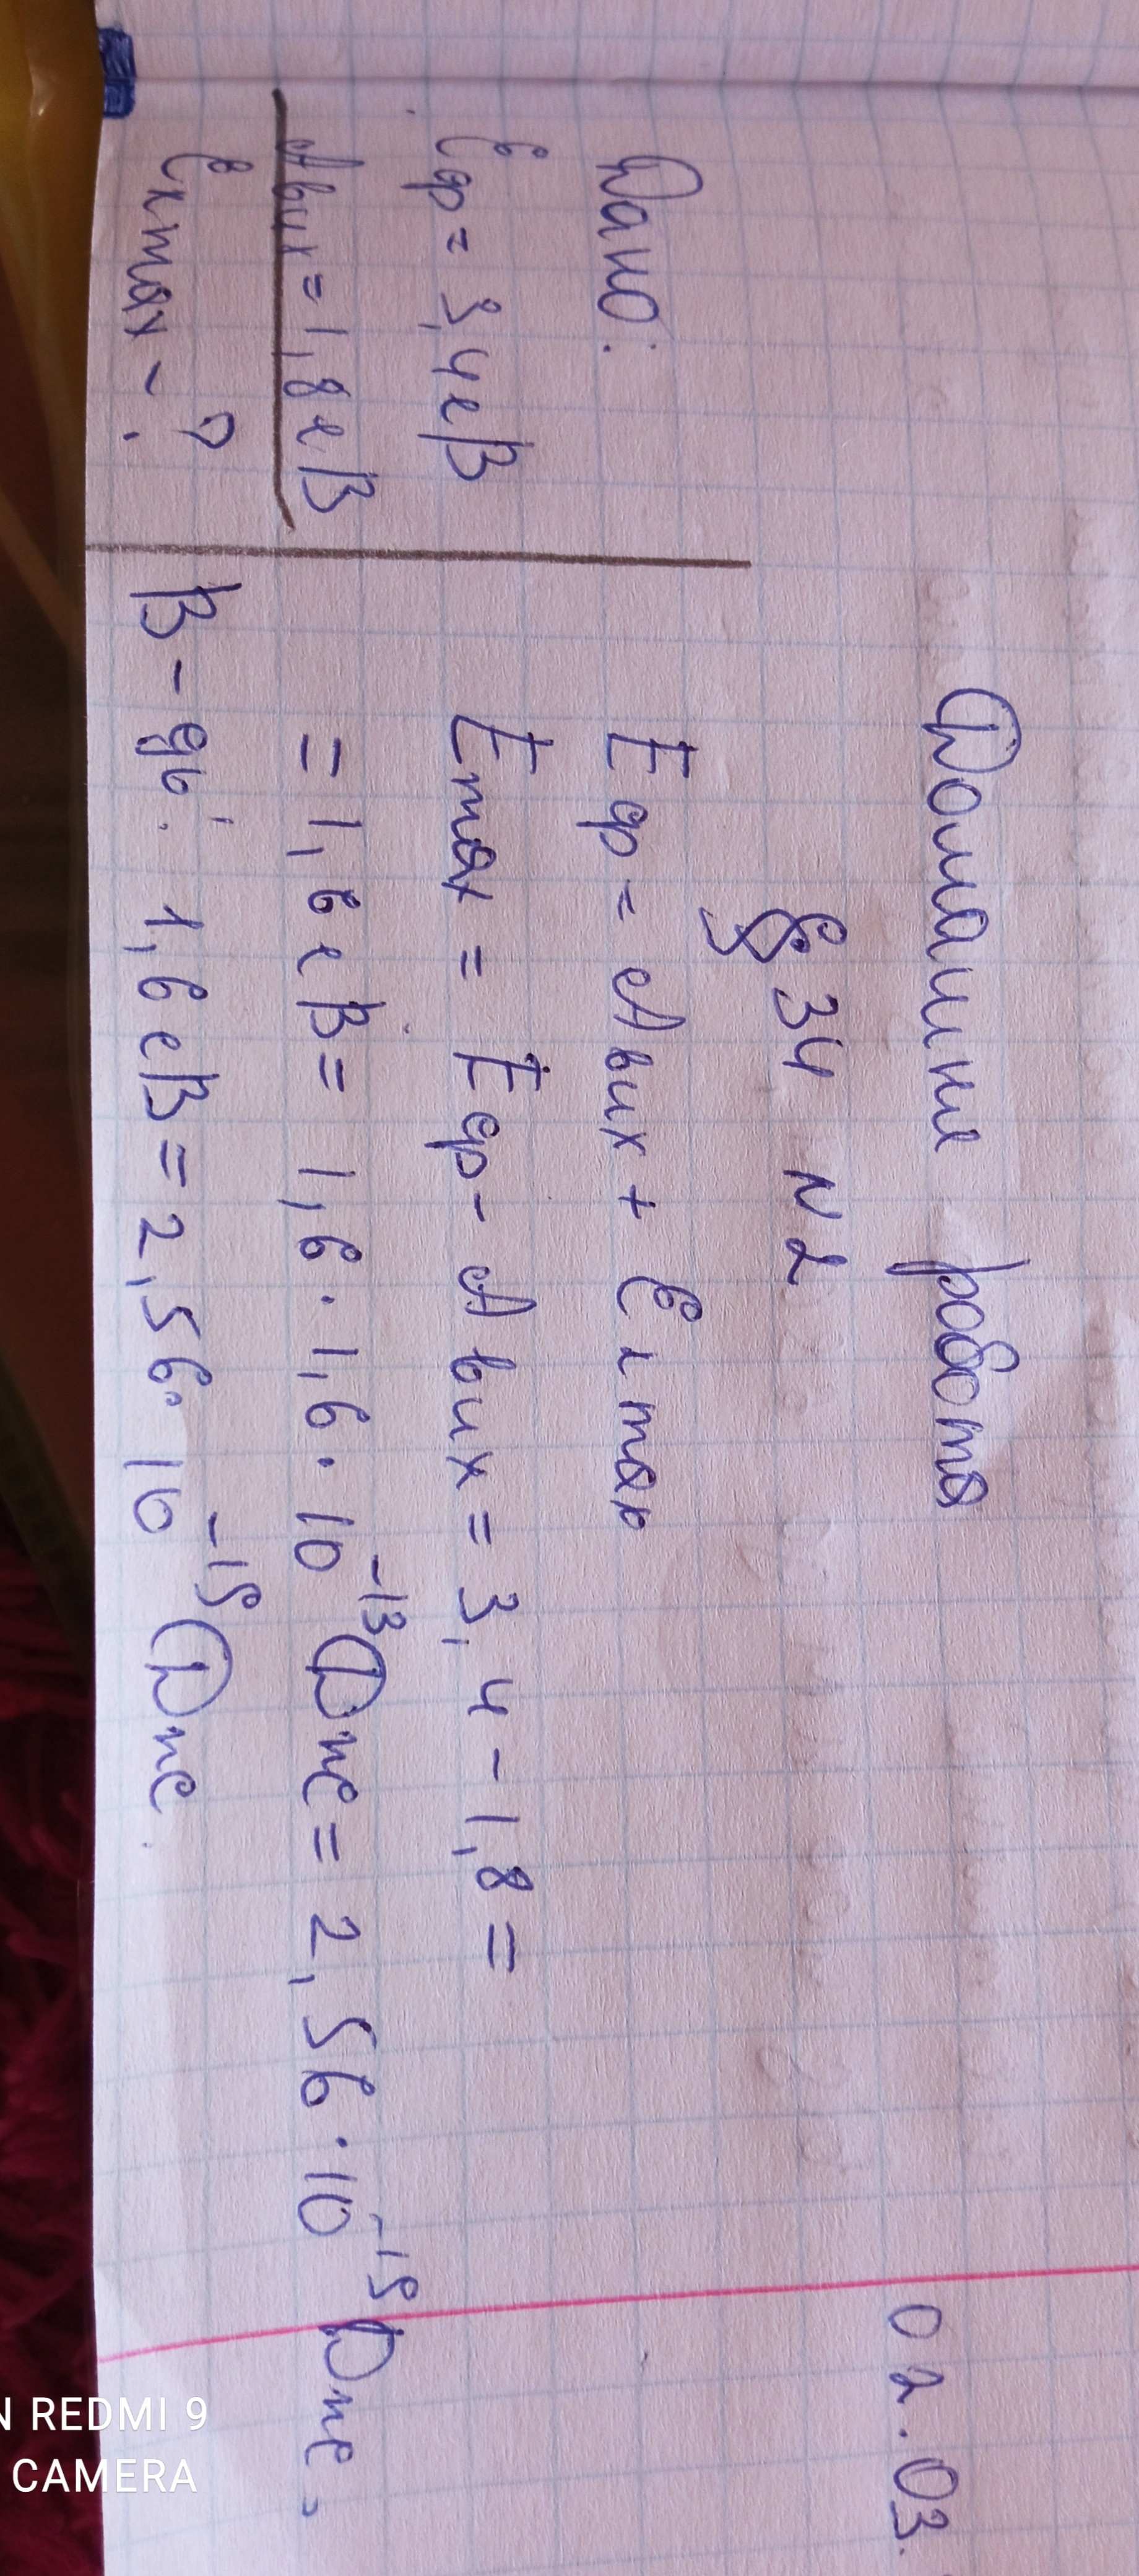 02.03.
Домашня робота
§ 34 N2
Дано:
Eф = 3,4 еВ
Aвих = 1,8 еВ
Eкmax - ?
Eф = Aвих + Eкmax
Emax = Eф - Aвих = 3,4 - 1,8 =
= 1,6 еВ = 1,6 · 1,6 · 10⁻¹³ Дже = 2,56 · 10⁻¹⁹ Дже.
В-дь: 1,6 еВ = 2,56 · 10⁻¹⁹ Дже.
N REDMI 9
CAMERA